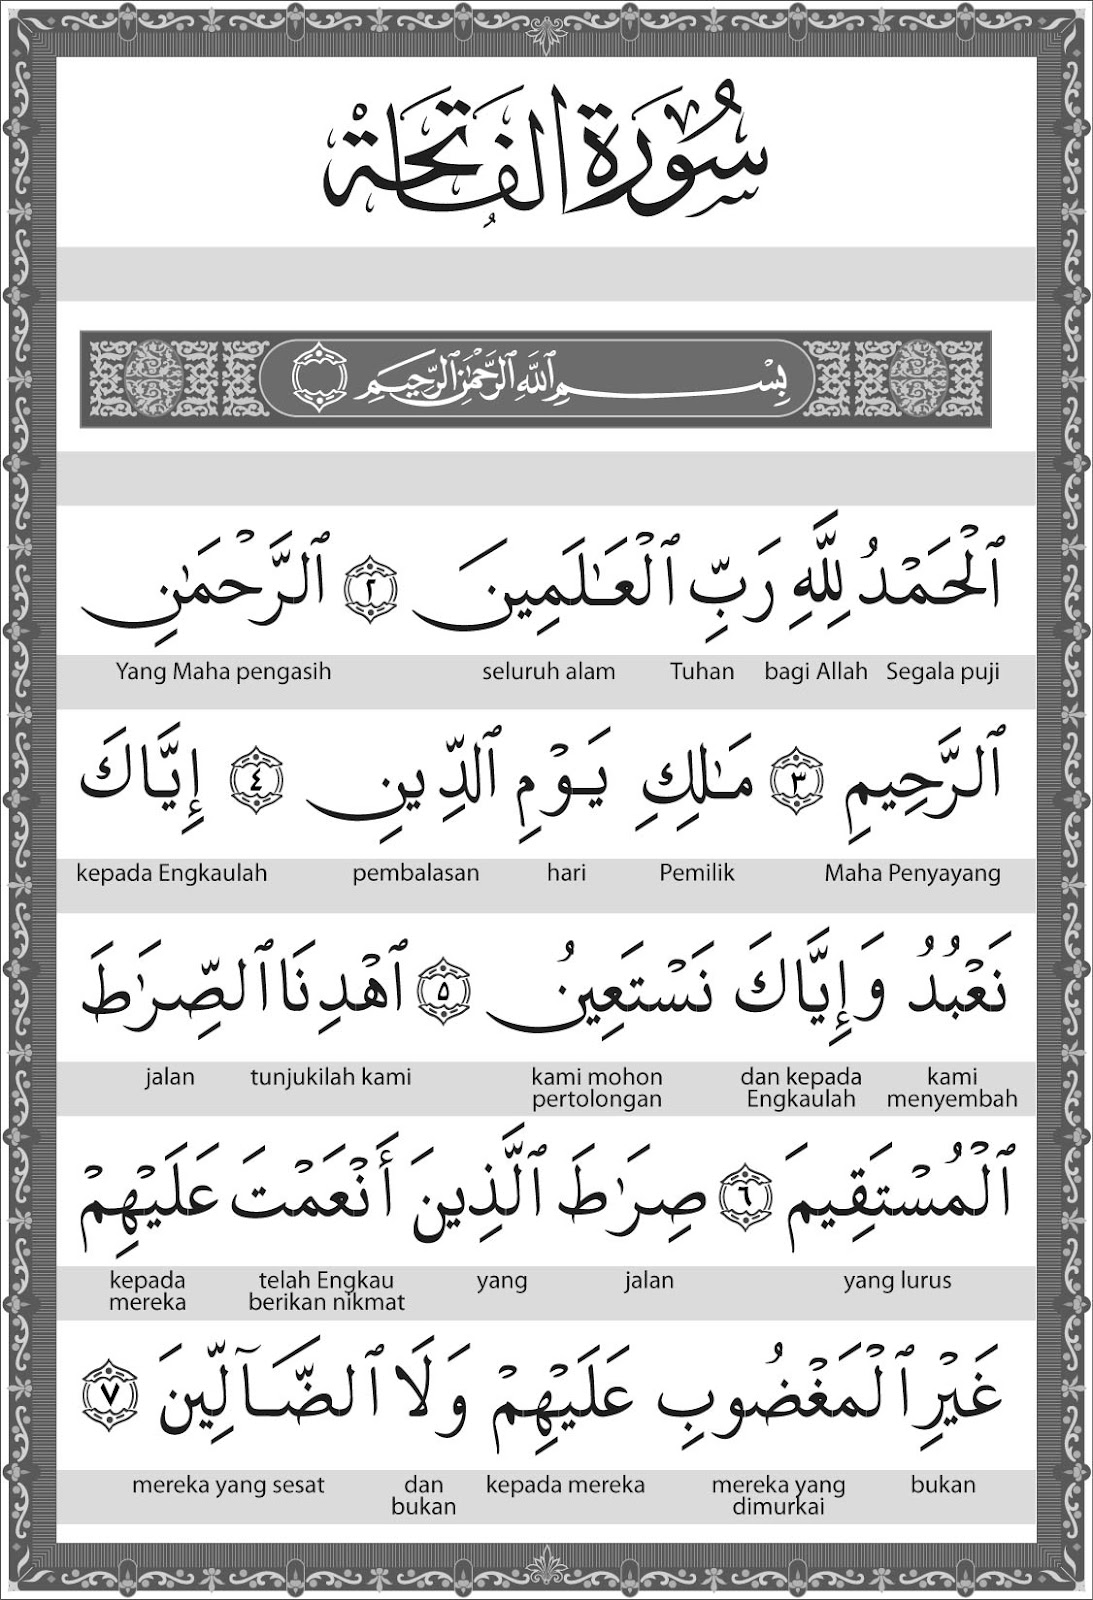 سُورَةُ الفَاتِحَة
بِسْمِ ٱللَّهِ ٱلرَّحْمَٰنِ ٱلرَّحِيمِ
ٱلْحَمْدُ لِلَّهِ رَبِّ ٱلْعَٰلَمِينَ ٢ ٱلرَّحْمَٰنِ
Yang Maha pengasih seluruh alam Tuhan bagi Allah Segala puji
ٱلرَّحِيمِ ٣ مَٰلِكِ يَوْمِ ٱلدِّينِ ٤ إِيَّاكَ
kepada Engkaulah pembalasan hari Pemilik Maha Penyayang
نَعْبُدُ وَإِيَّاكَ نَسْتَعِينُ ٥ ٱهْدِنَا ٱلصِّرَٰطَ
jalan tunjukilah kami kami mohon pertolongan dan kepada Engkaulah kami menyembah
ٱلْمُسْتَقِيمَ ٦ صِرَٰطَ ٱلَّذِينَ أَنْعَمْتَ عَلَيْهِمْ
kepada mereka telah Engkau berikan nikmat yang jalan yang lurus
غَيْرِ ٱلْمَغْضُوبِ عَلَيْهِمْ وَلَا ٱلضَّآلِّينَ ٧
mereka yang sesat dan bukan kepada mereka mereka yang dimurkai bukan